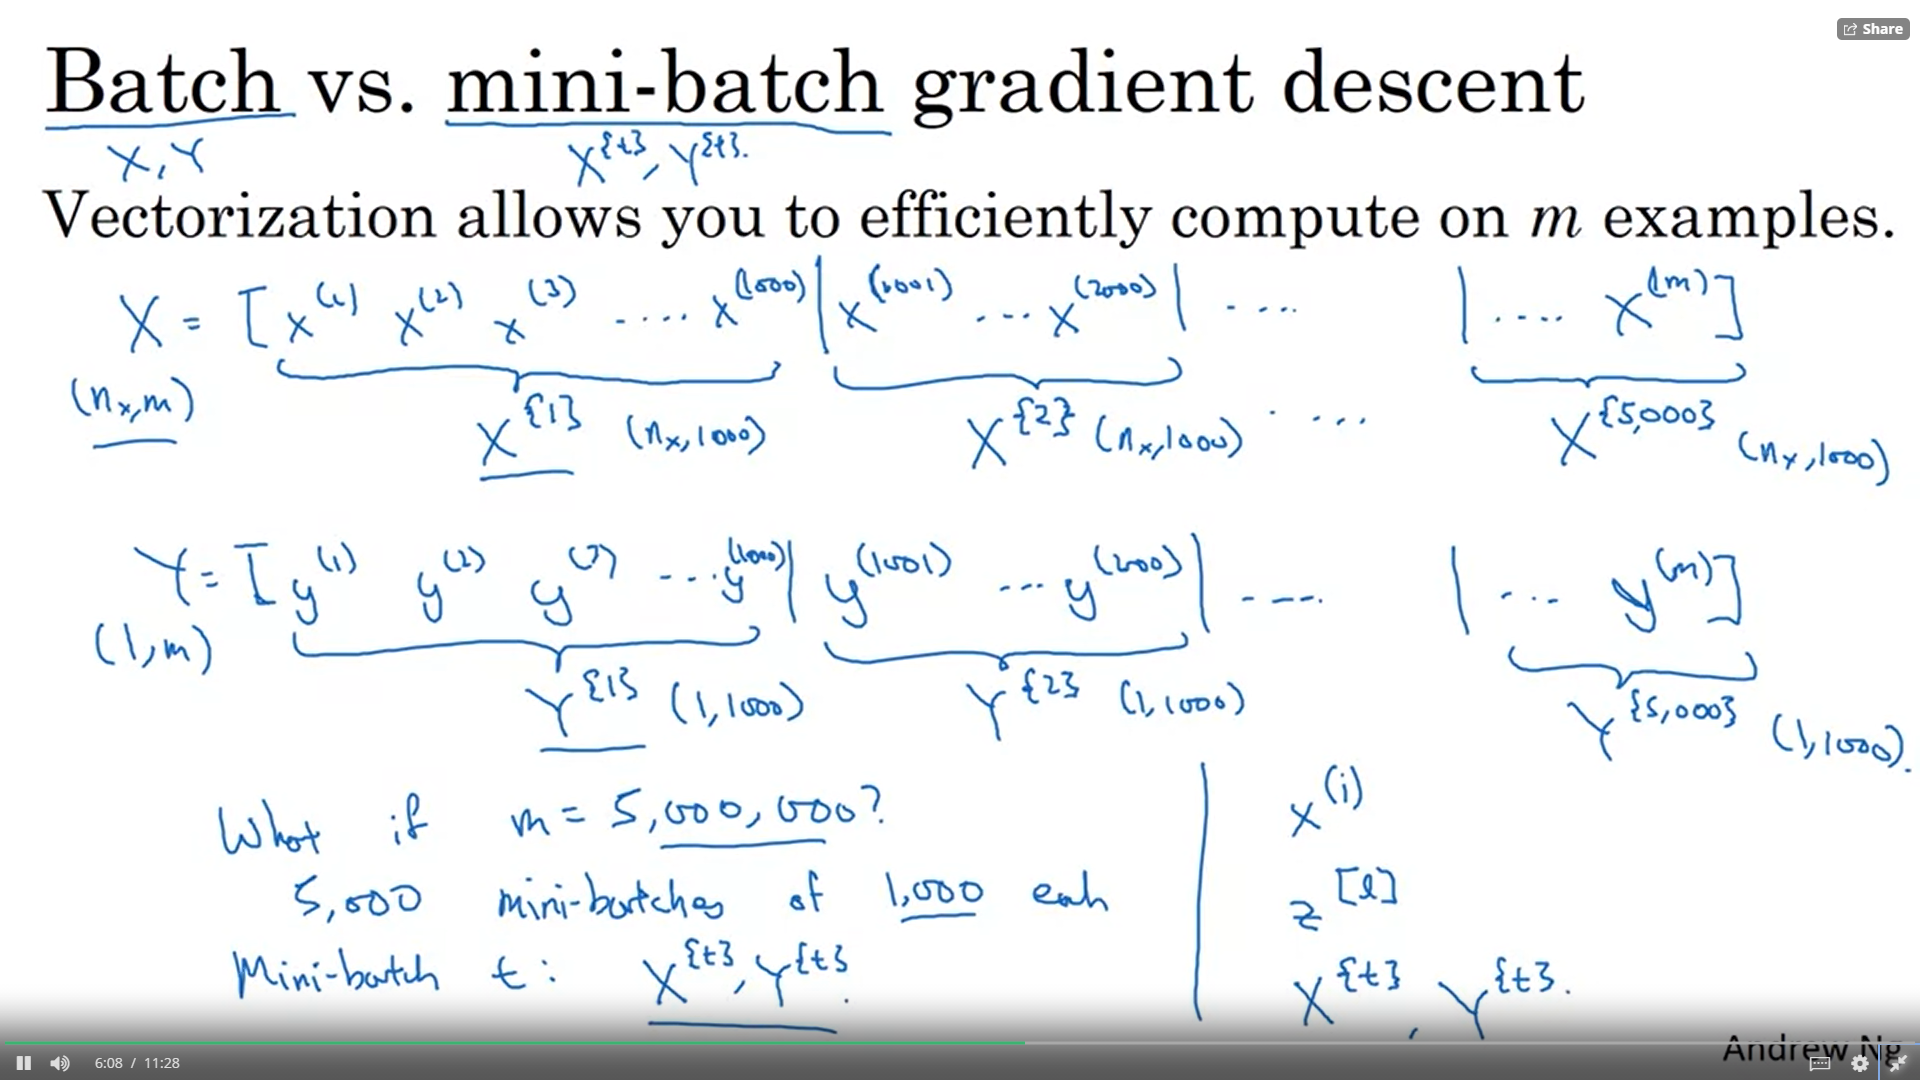 Share
Batch vs. mini-batch gradient descent
X, Y X^{t}, Y^{t}.
Vectorization allows you to efficiently compute on m examples.
X = [x^(1) x^(2) x^(3) .... x^(1000) | x^(1001) ... x^(2000) | .... | .... x^(m)]
(n_x, m) X^{1} (n_x, 1000) X^{2} (n_x, 1000) .... X^{5,000} (n_x, 1000)
Y = [y^(1) y^(2) y^(3) ... y^(1000) | y^(1001) ... y^(2000) | .... | ... y^(m)]
(1, m) Y^{1} (1, 1000) Y^{2} (1, 1000) Y^{5,000} (1, 1000).
What if m = 5,000,000?
5,000 mini-batches of 1,000 each
Mini-batch t: X^{t}, Y^{t}.
x^(i)
z^[l]
X^{t}, Y^{t}.
Andrew Ng
6:08 / 11:28